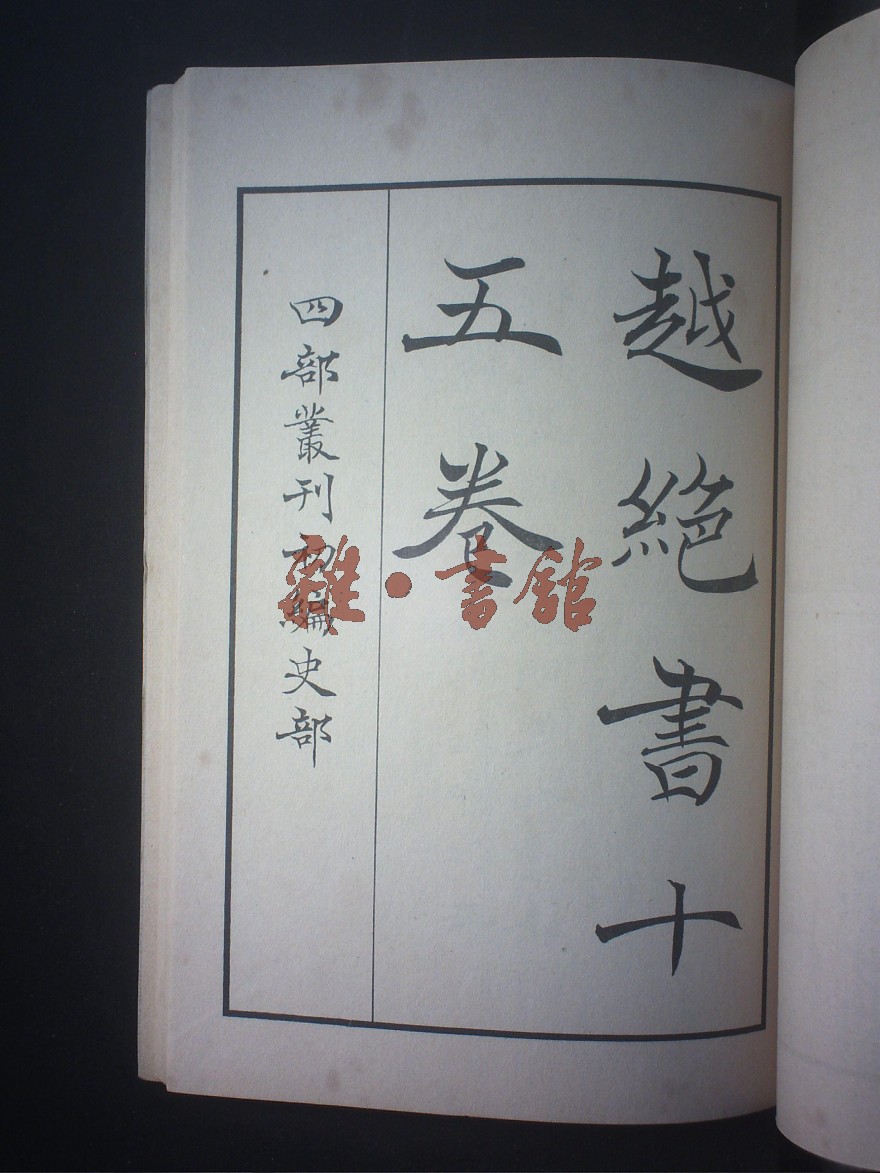 越絕書十
五卷
四部叢刊初編史部
雜·書館